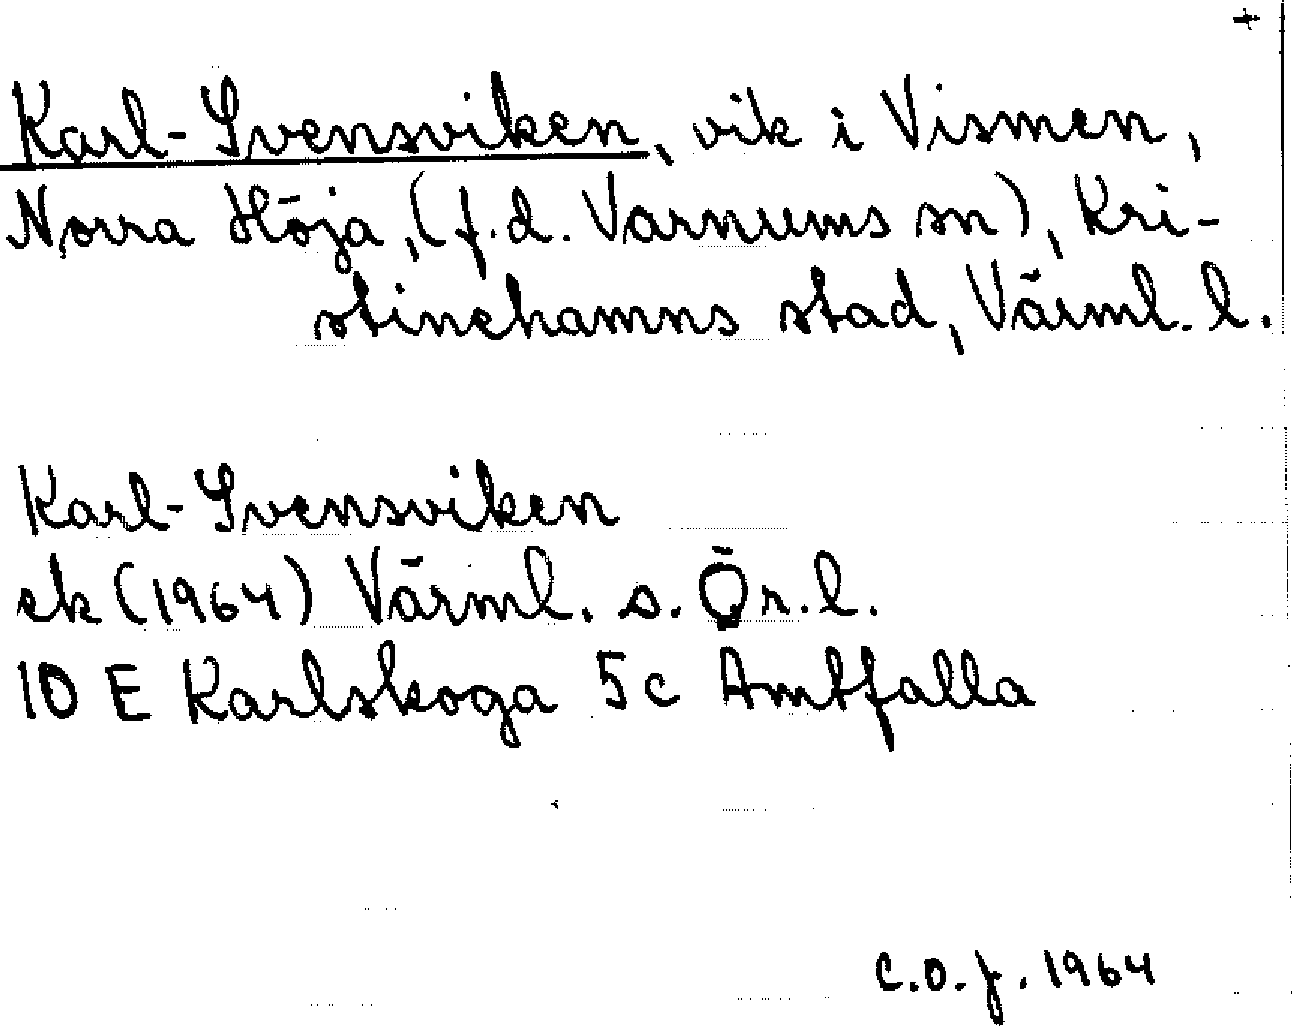 +
Karl-Svensviken, vik i Vismen,
Norra Höja, (f.d. Varnums sn), Kri-
stinehamns stad, Värml. l.
Karl-Svensviken
ek (1964) Värml. o. Ör. l.
10 E Karlskoga 5c Amtfalla
C.O.J. 1964